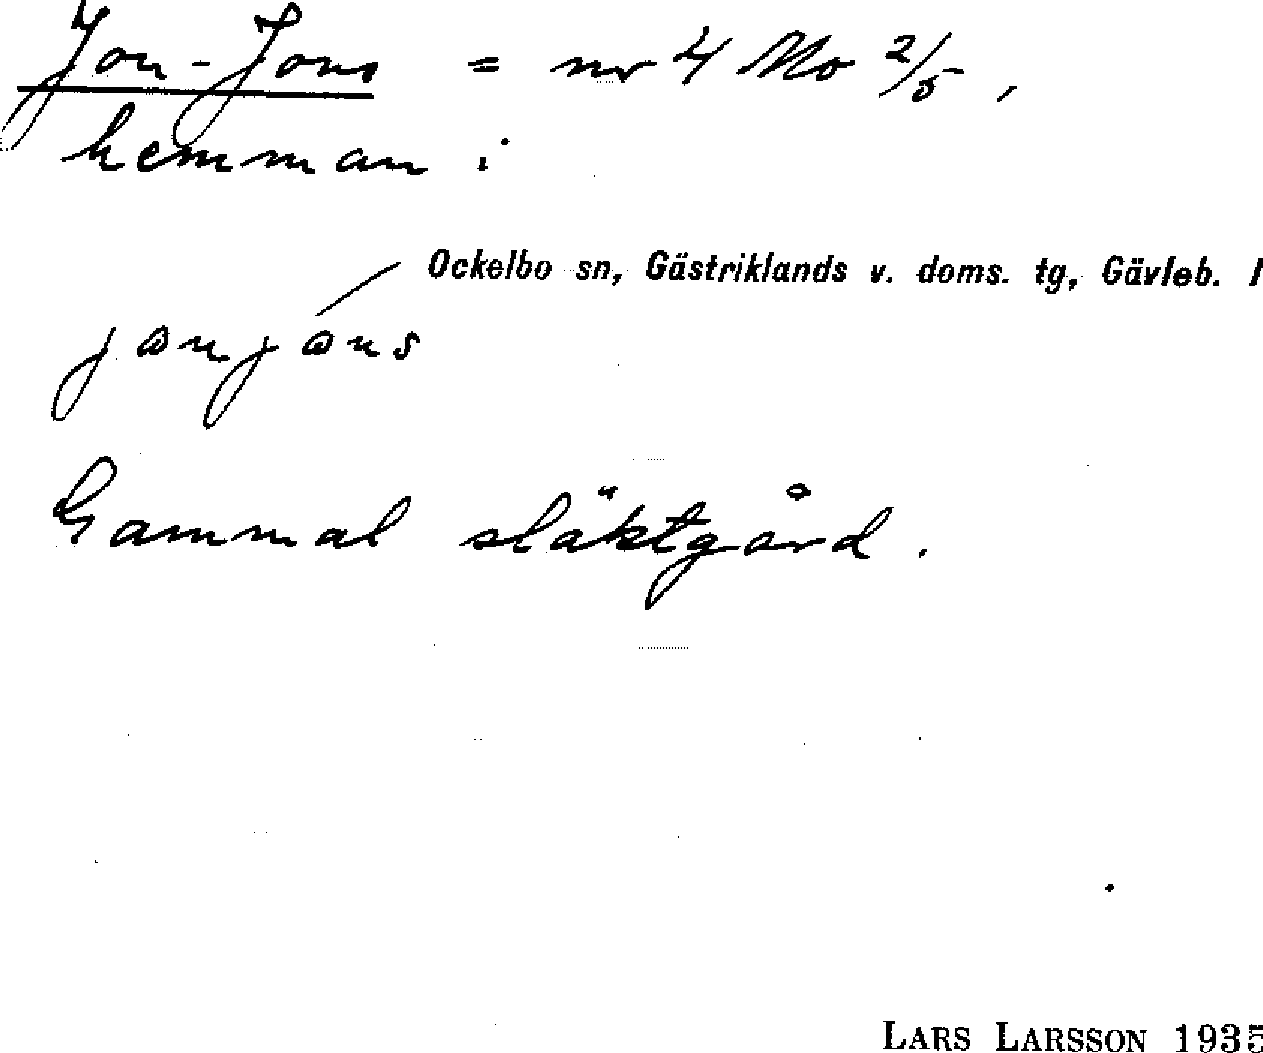 Jon-Jons = nr 4 Mo 2/5,
hemman i
Ockelbo sn, Gästriklands v. doms. tg, Gävleb. l
jonjons
Gammal släktgård.
LARS LARSSON 1935